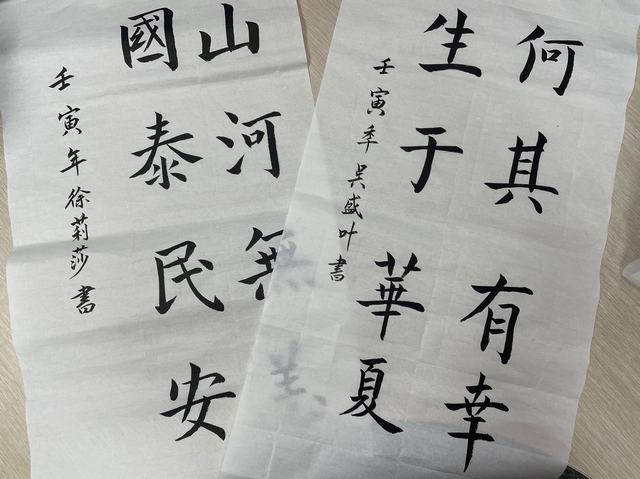 何其有幸
生于華夏
壬寅秊吴盛叶書
山河無恙
國泰民安
壬寅年徐莉莎書